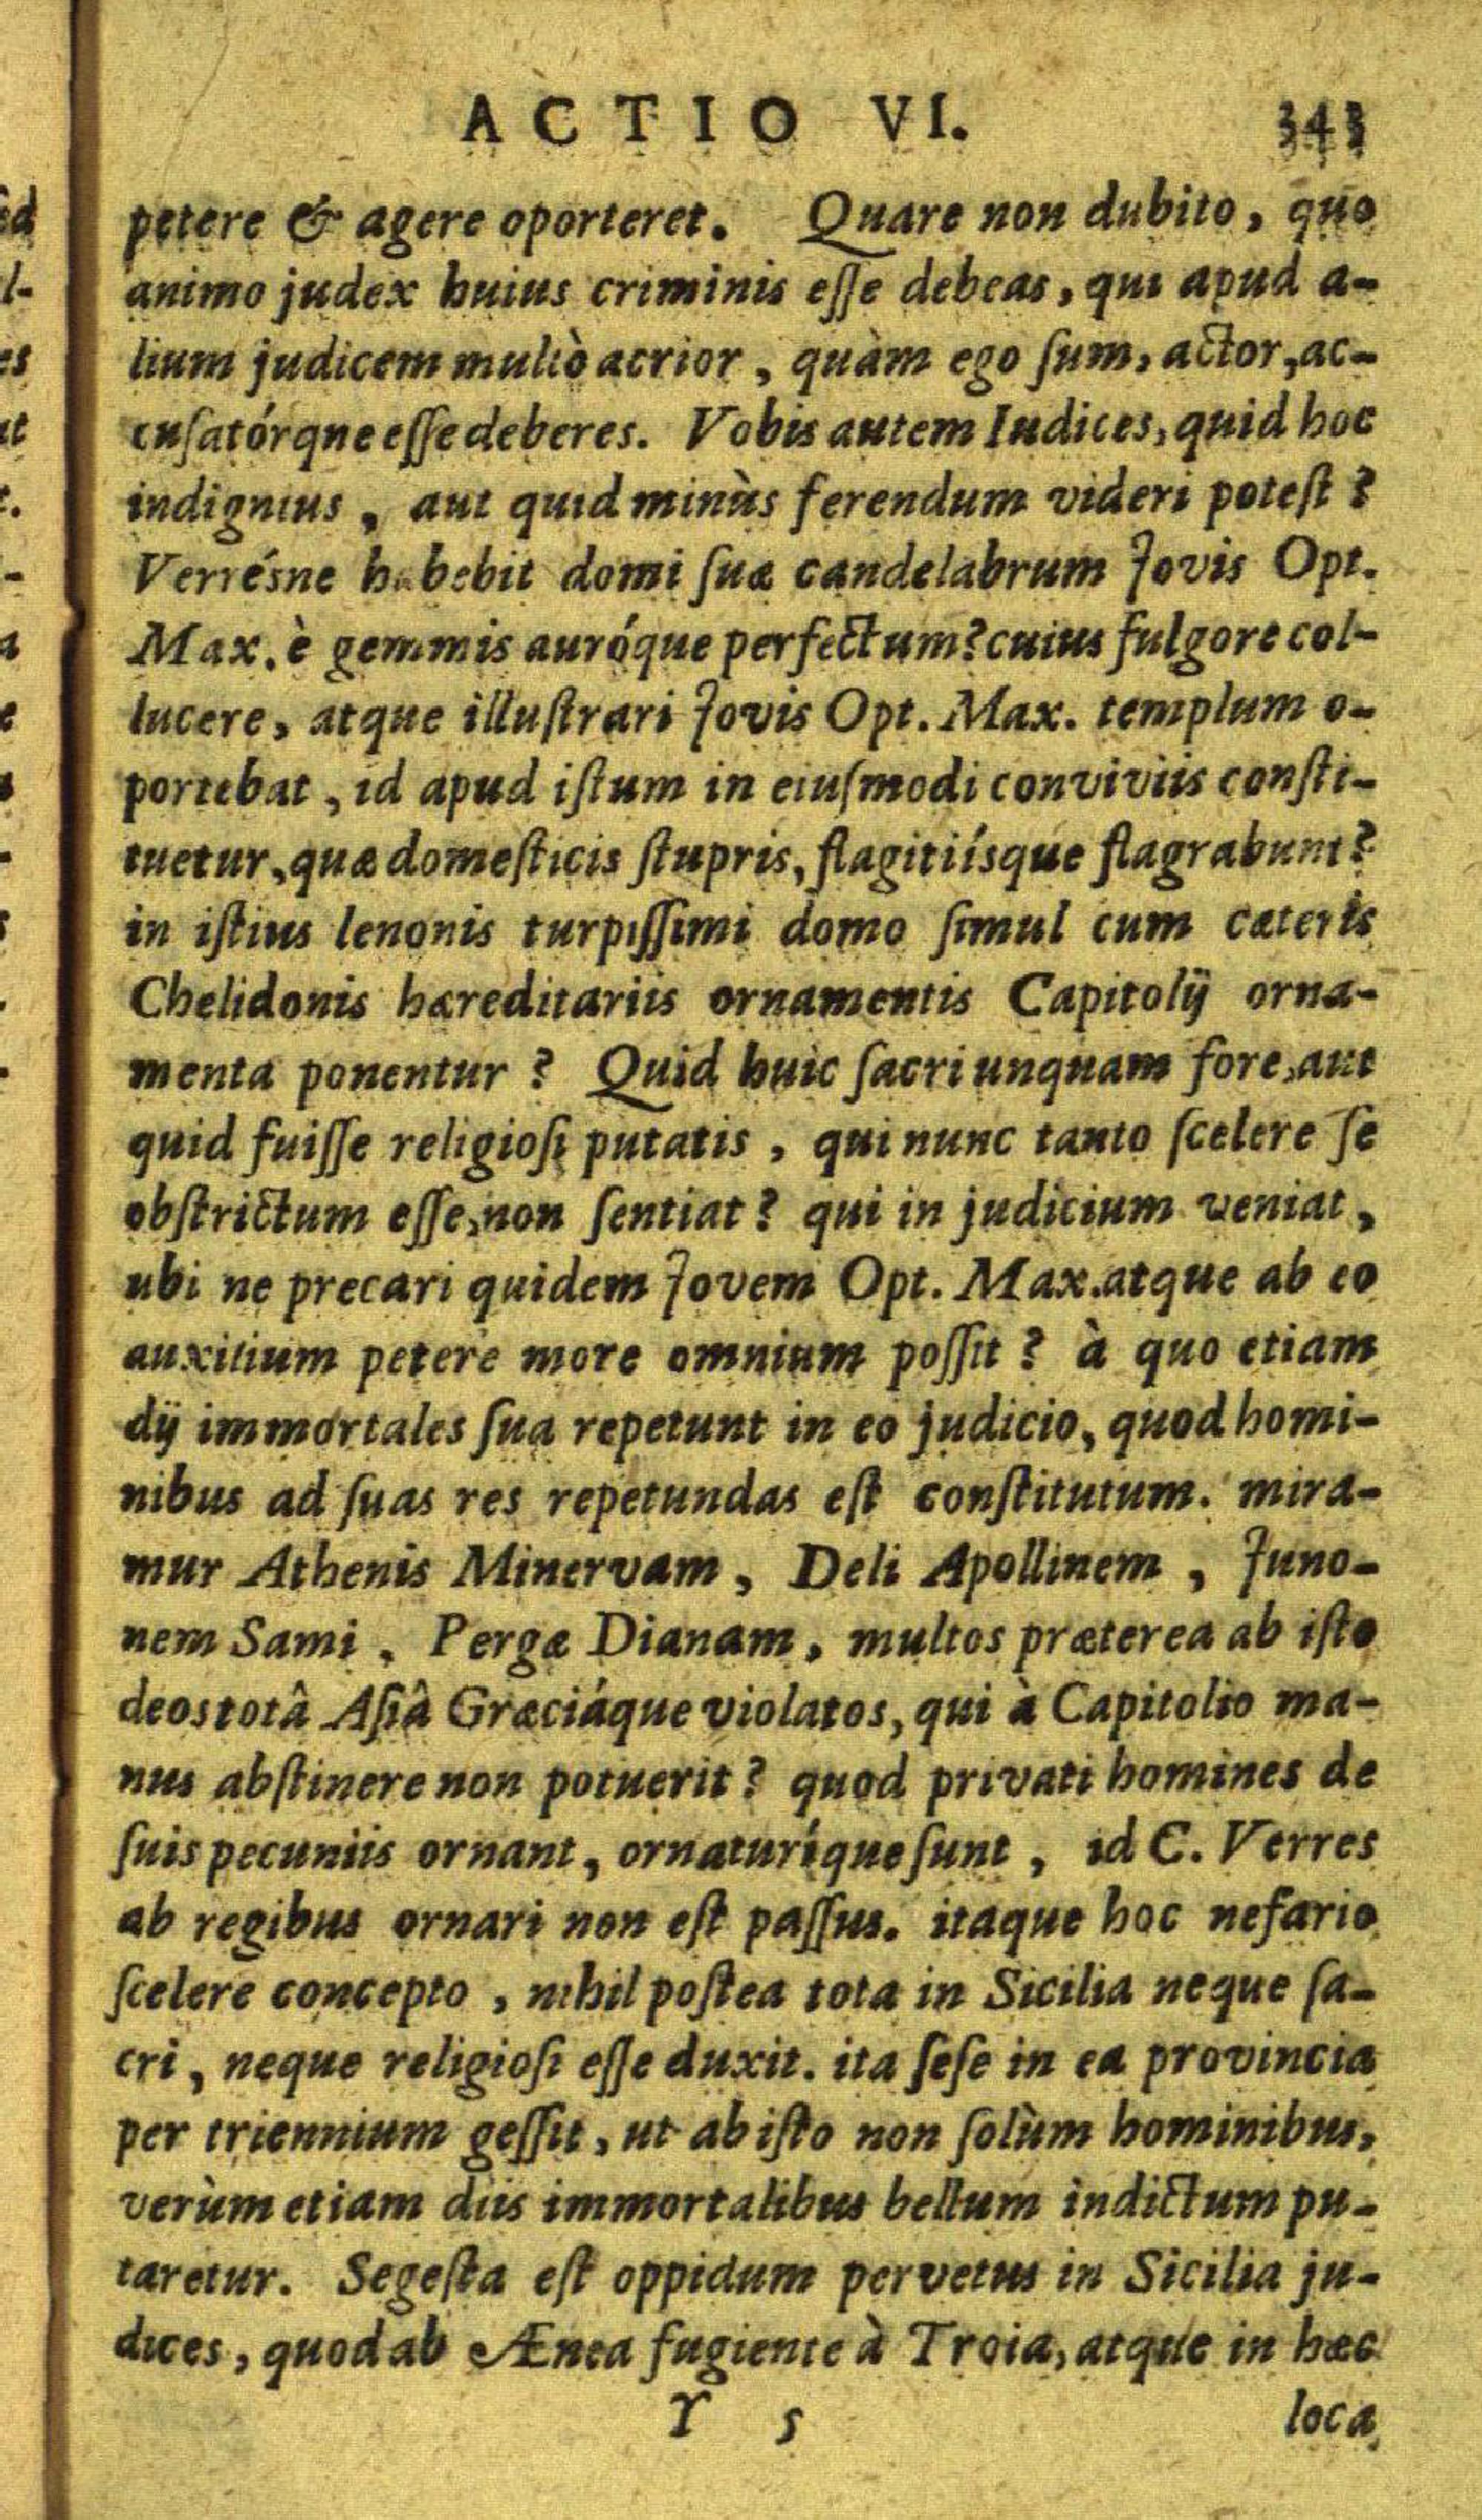 ACTIO VI. 343
petere & agere oporteret. Quare non dubito, quo
animo judex huius criminis eſſe debeas, qui apud a-
lium judicem multò acrior, quàm ego ſum, actor, ac-
cuſatórque eſſe deberes. Vobis autem Iudices, quid hoc
indignius, aut quid minùs ferendum videri poteſt?
Verrésne habebit domi ſuæ candelabrum Jovis Opt.
Max. è gemmis auróque perfectum? cuius fulgore col-
lucere, atque illuſtrari Jovis Opt. Max. templum o-
portebat, id apud iſtum in eiuſmodi conviviis conſti-
tuetur, quæ domeſticis ſtupris, flagitiísque flagrabunt?
in iſtius lenonis turpiſſimi domo ſimul cum cæteris
Chelidonis hæreditariis ornamentis Capitolij orna-
menta ponentur? Quid huic ſacri unquam fore, aut
quid fuiſſe religioſi putatis, qui nunc tanto ſcelere ſe
obſtrictum eſſe, non ſentiat? qui in judicium veniat,
ubi ne precari quidem Jovem Opt. Max. atque ab eo
auxilium petere more omnium poſſit? à quo etiam
dij immortales ſua repetunt in eo judicio, quod homi-
nibus ad ſuas res repetundas eſt conſtitutum. mira-
mur Athenis Minervam, Deli Apollinem, Juno-
nem Sami, Pergæ Dianam, multos præterea ab iſto
deos totâ Aſiâ Græciáque violatos, qui à Capitolio ma-
nus abſtinere non potuerit? quod privati homines de
ſuis pecuniis ornant, ornaturíque ſunt, id C. Verres
ab regibus ornari non eſt paſſus. itaque hoc nefario
ſcelere concepto, nihil poſtea tota in Sicilia neque ſa-
cri, neque religioſi eſſe duxit. ita ſeſe in ea provincia
per triennium geſſit, ut ab iſto non ſolùm hominibus,
verùm etiam diis immortalibus bellum indictum pu-
taretur. Segeſta eſt oppidum pervetus in Sicilia ju-
dices, quod ab Ænea fugiente à Troia, atque in hæc
Y 5 loca